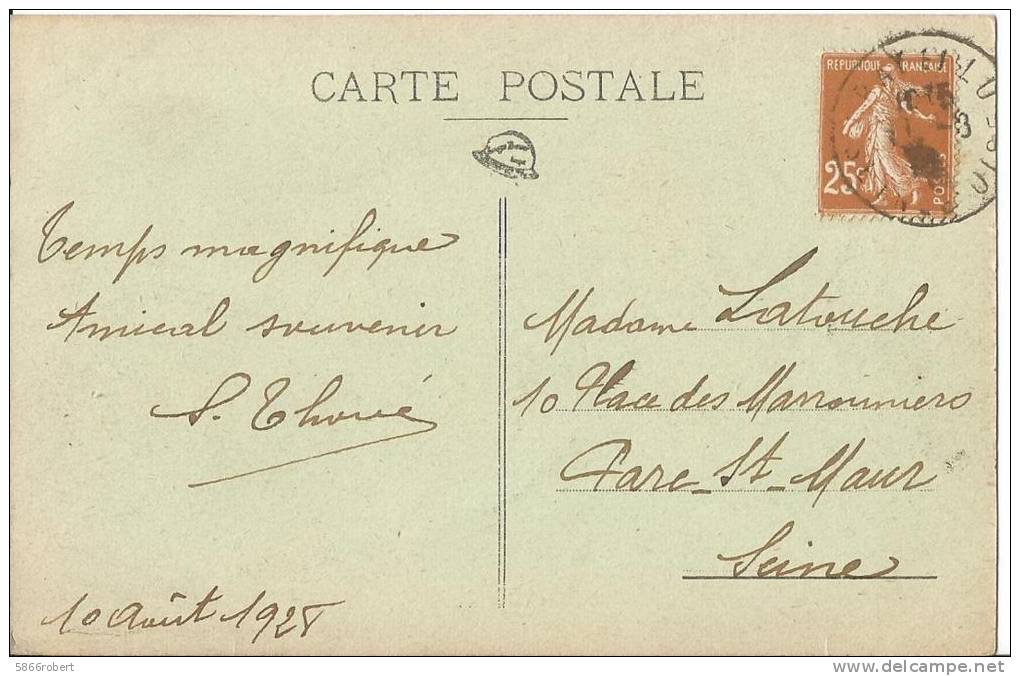 CARTE POSTALE
REPUBLIQUE FRANÇAISE
25c
POSTES
Temps magnifique
Amical souvenir
10 Août 1928
Madame Latouche
10 Place des Marronniers
Parc-St-Maur
Seine
5866robert
www.delcampe.net